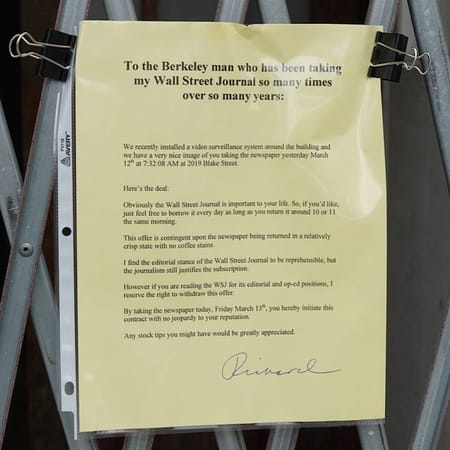 To the Berkeley man who has been taking
my Wall Street Journal so many times
over so many years:
We recently installed a video surveillance system around the building and
we have a very nice image of you taking the newspaper yesterday March
12th at 7:32:08 AM at 2019 Blake Street.
Here's the deal:
Obviously the Wall Street Journal is important to your life. So, if you'd like,
just feel free to borrow it every day as long as you return it around 10 or 11
the same morning.
This offer is contingent upon the newspaper being returned in a relatively
crisp state with no coffee stains.
I find the editorial stance of the Wall Street Journal to be reprehensible, but
the journalism still justifies the subscription.
However if you are reading the WSJ for its editorial and op-ed positions, I
reserve the right to withdraw this offer.
By taking the newspaper today, Friday March 13th, you hereby initiate this
contract with no jeopardy to your reputation.
Any stock tips you might have would be greatly appreciated.
Richard
AVERY